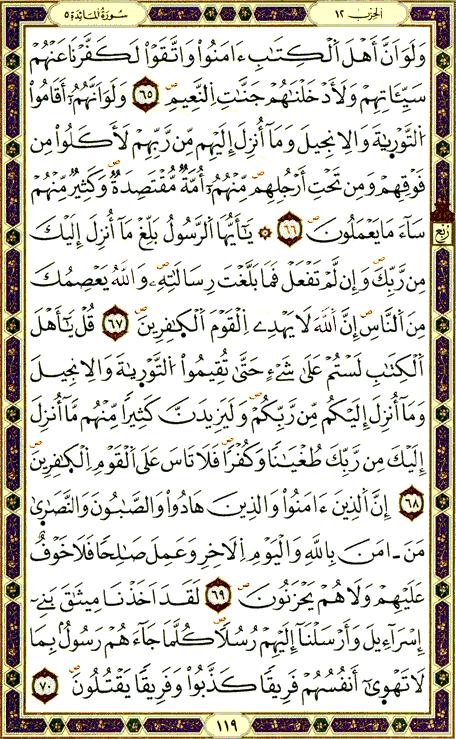 الحزب ١٢
سُورَةُ المَائِدَة ٥
وَلَوَ اَنَّ أَهْلَ اَلْكِتَٰبِ ءَامَنُواْ وَاتَّقَوْاْ لَكَفَّرْنَا عَنْهُمْ
سَيِّـَٔاتِهِمْ وَلَأَدْخَلْنَٰهُمْ جَنَّٰتِ اِلنَّعِيمِ ٦٥ وَلَوَ اَنَّهُمُۥٓ أَقَامُواْ
اُلتَّوْرَىٰةَ وَالِانجِيلَ وَمَآ أُنزِلَ إِلَيْهِم مِّن رَّبِّهِمْ لَأَكَلُواْ مِن
فَوْقِهِمْ وَمِن تَحْتِ أَرْجُلِهِم مِّنْهُمُۥٓ أُمَّةٌ مُّقْتَصِدَةٌ وَكَثِيرٌ مِّنْهُمْ
سَآءَ مَا يَعْمَلُونَ ٦٦ ۞ يَٰٓأَيُّهَا اَلرَّسُولُ بَلِّغْ مَآ أُنزِلَ إِلَيْكَ
ربع
مِن رَّبِّكَ وَإِن لَّمْ تَفْعَلْ فَمَا بَلَّغْتَ رِسَالَٰتِهِۦ وَاللَّهُ يَعْصِمُكَ
مِنَ اَلنَّاسِ إِنَّ اَللَّهَ لَا يَهْدِے اِلْقَوْمَ اَلْكٰ۪فِرِينَ ٦٧ قُلْ يَٰٓأَهْلَ
اَلْكِتَٰبِ لَسْتُمْ عَلَىٰ شَےْءٍ حَتَّىٰ تُقِيمُواْ اُلتَّوْرَىٰةَ وَالِانجِيلَ
وَمَآ أُنزِلَ إِلَيْكُم مِّن رَّبِّكُمْ وَلَيَزِيدَنَّ كَثِيراً مِّنْهُم مَّآ أُنزِلَ
إِلَيْكَ مِن رَّبِّكَ طُغْيَٰناً وَكُفْراً فَلَا تَاسَ عَلَى اَلْقَوْمِ اِلْكٰ۪فِرِينَ
٦٨ إِنَّ اَلذِينَ ءَامَنُواْ وَالذِينَ هَادُواْ وَالصَّٰبُونَ وَالنَّصَٰرَىٰ
مَنَ ـ امَنَ بِاللَّهِ وَالْيَوْمِ اِلَاخِرِ وَعَمِلَ صَٰلِحاً فَلَا خَوْفٌ
عَلَيْهِمْ وَلَا هُمْ يَحْزَنُونَ ٦٩ لَقَدَ اَخَذْنَا مِيثَٰقَ بَنِےٓ
إِسْرَآءِيلَ وَأَرْسَلْنَآ إِلَيْهِمْ رُسُلاً كُلَّمَا جَآءَهُمْ رَسُولُۢ بِمَا
لَا تَهْوَىٰٓ أَنفُسُهُمْ فَرِيقاً كَذَّبُواْ وَفَرِيقاً يَقْتُلُونَ ٧٠
١١٩